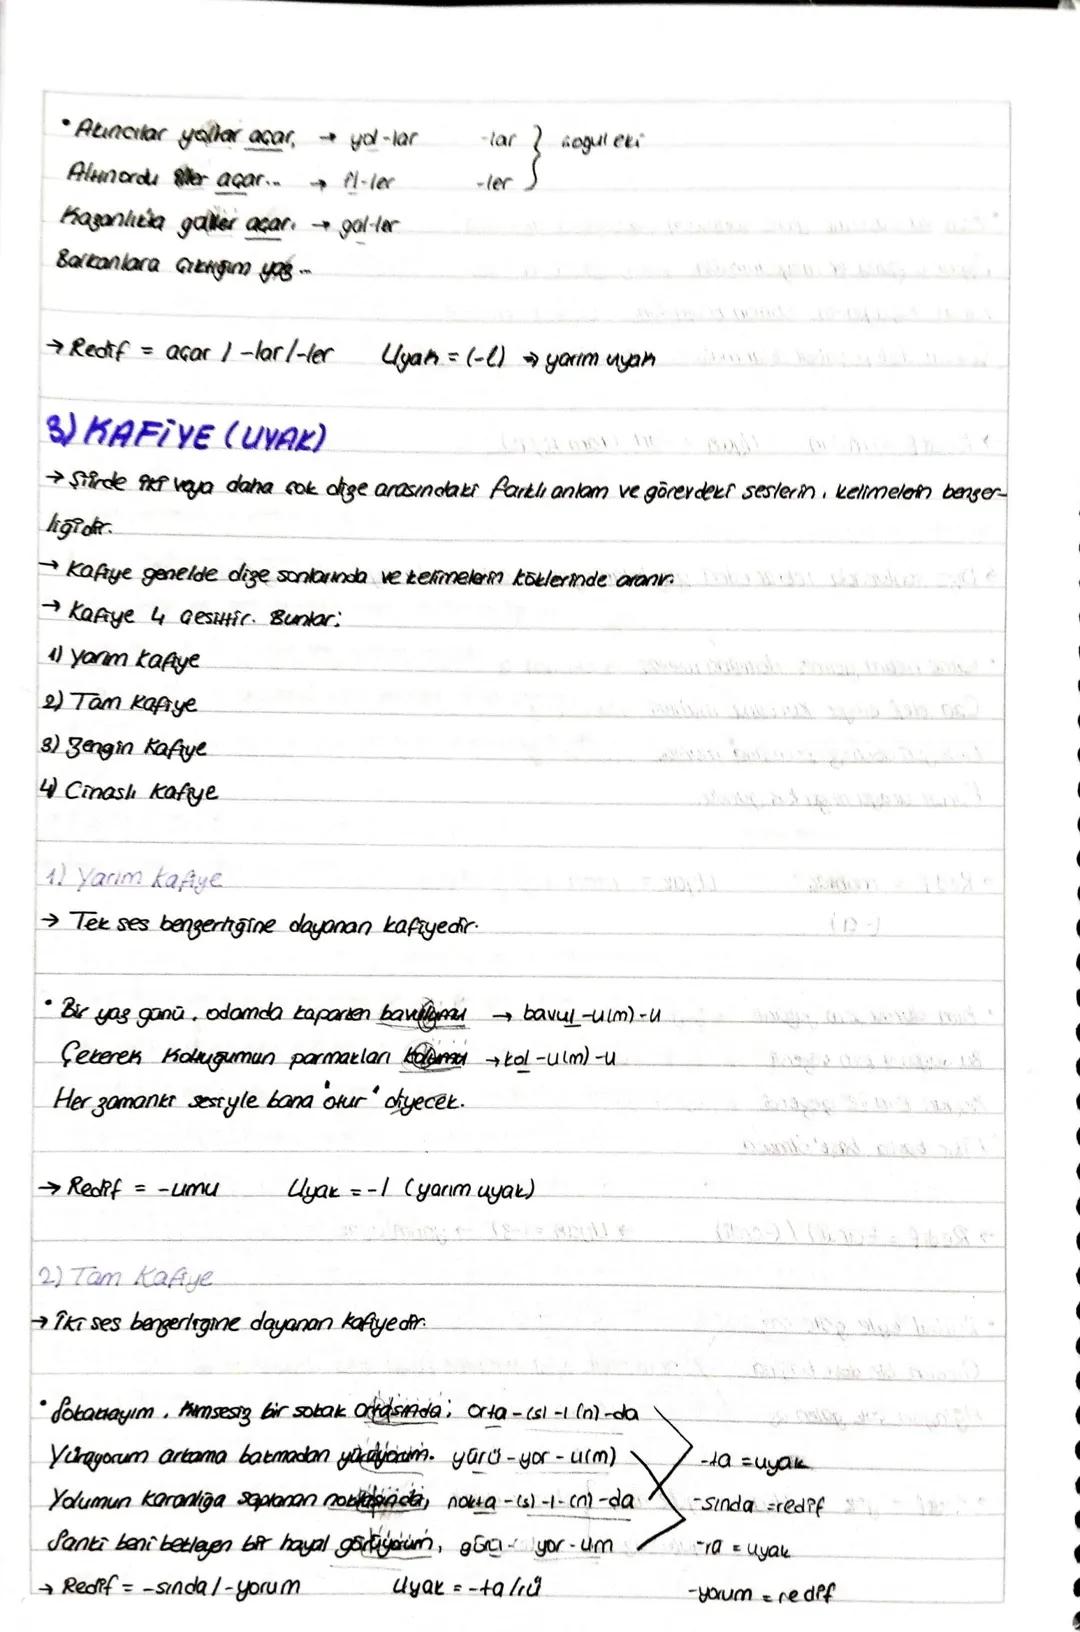 • Akıncılar yollar açar, → yol-lar -lar } çoğul eki
Altınordu iller açar... → il-ler -ler
Kazanlıkta güller açar. → gül-ler
Balkanlara çıktığım yaz...
→ Redif = açar / -lar/-ler Uyak = (-l) → yarım uyak
3) KAFİYE (UYAK)
→ Şiirde iki veya daha çok dize arasındaki farklı anlam ve görevdeki seslerin, kelimelerin benzer-
liğidir.
→ Kafiye genelde dize sonlarında ve kelimelerin köklerinde aranır.
→ Kafiye 4 çeşittir. Bunlar:
1) Yarım kafiye
2) Tam kafiye
3) Zengin kafiye
4) Cinaslı kafiye
1) Yarım kafiye
→ Tek ses benzerliğine dayanan kafiyedir.
• Bir yaz günü, odamda kaparken bavulumu → bavul-u(m)-u
Çekerek koltuğumun parmakları kolumu → kol-u(m)-u
Her zamanki sesiyle bana "otur" diyecek.
→ Redif = -umu Uyak = -l (yarım uyak)
2) Tam Kafiye
→ İki ses benzerliğine dayanan kafiyedir.
• Sokaktayım, kimsesiz bir sokak ortasında; orta-(s)-ı(n)-da
Yürüyorum arkama bakmadan yürüyorum. yürü-yor-u(m) -ta = uyak
Yolumun karanlığa saplanan noktasında, nokta-(s)-ı-(n)-da -sında = redif
Sanki beni bekleyen bir hayal görüyorum, görü- yor-um -ra = uyak
→ Redif = -sında / -yorum Uyak = -ta/rü -yorum = redif